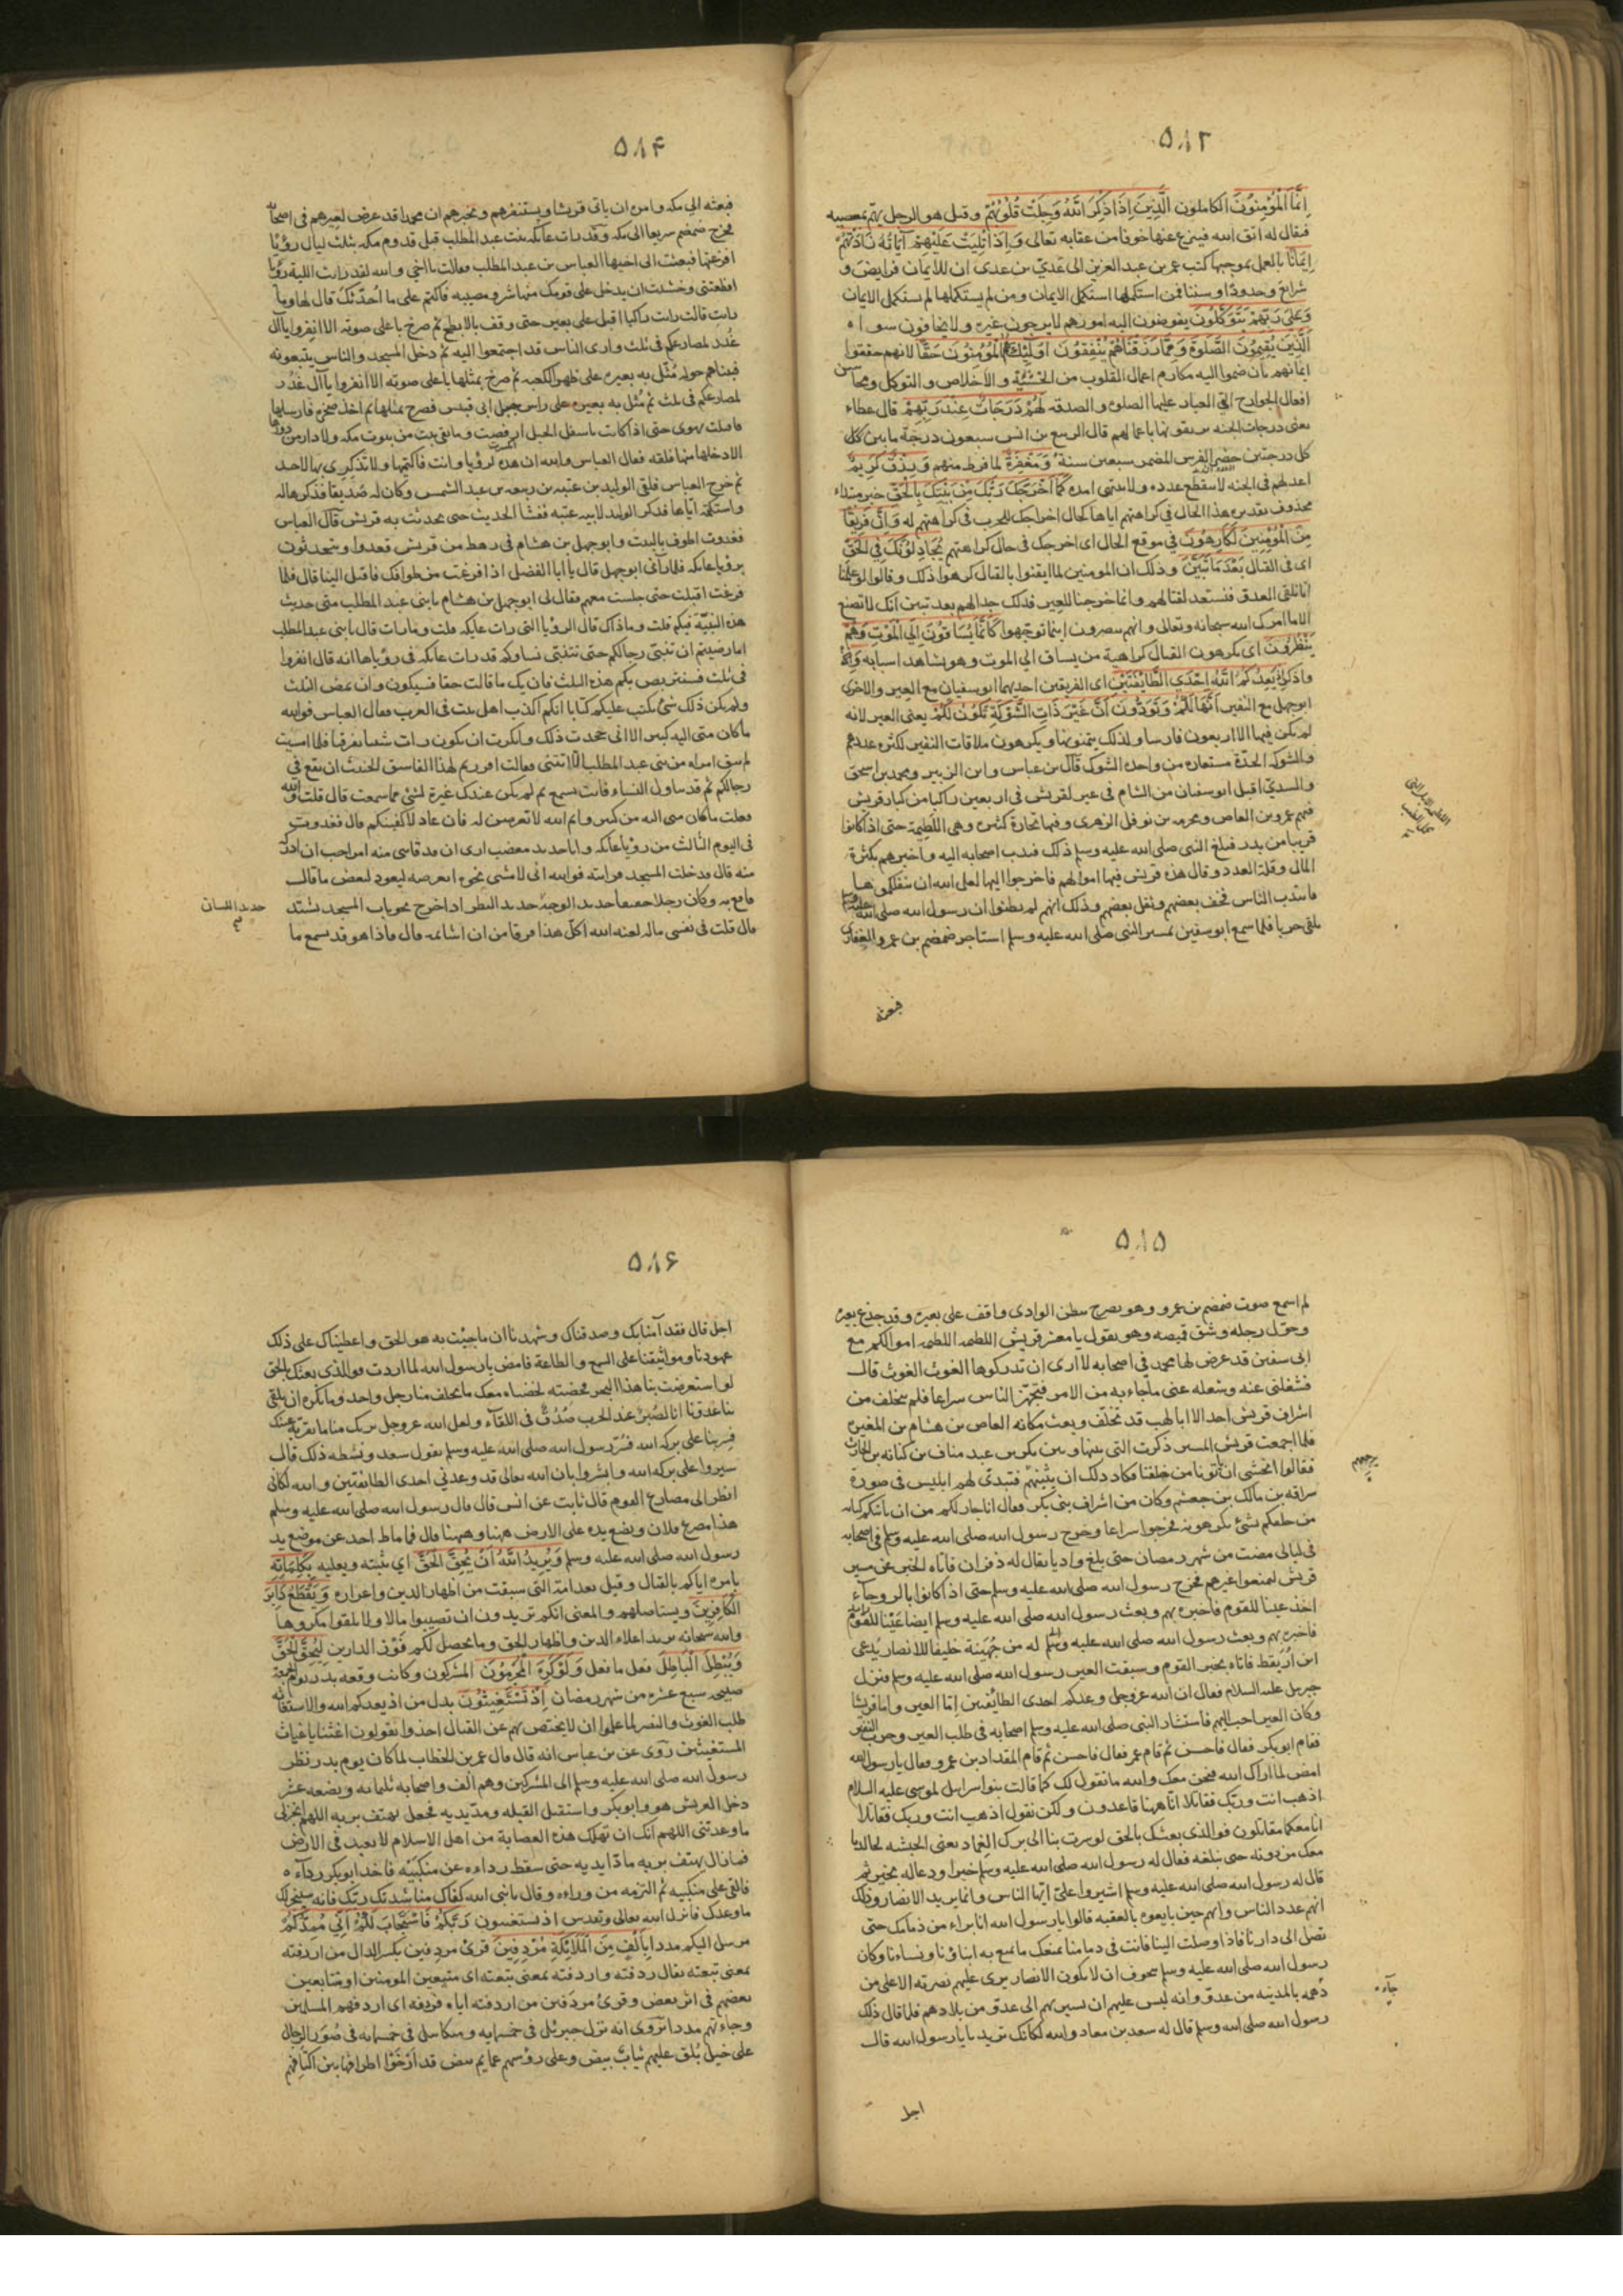 ۵۸۳
إِنَّمَا الْمُؤْمِنُونَ الكاملون الَّذِينَ إِذَا ذُكِرَ اللَّهُ وَجِلَتْ قُلُوبُهُمْ وقيل هو الرجل يهم بمعصيه
فيقال له اتق الله فينزع عنها خوفا من عقابه تعالى وَإِذَا تُلِيَتْ عَلَيْهِمْ آيَاتُهُ زَادَتْهُمْ
إِيمَانًا بالعمل بموجبها كتب عمر بن عبد العزيز الى عَديّ بن عدى ان للايمان فرايض و
شرايع وحدودًا وسننا فمن استكملها استكمل الايمان ومن لم يستكملها لم يستكمل الايمان
وَعَلَى رَبِّهِمْ يَتَوَكَّلُونَ يفوضون اليه امورهم لا يرجون غيره ولا يخافون سواه
الَّذِينَ يُقِيمُونَ الصَّلَوةَ وَمِمَّا رَزَقْنَاهُمْ يُنْفِقُونَ أُولَئِكَ هُمُ الْمُؤْمِنُونَ حَقًّا لانهم حققوا
ايمانهم بان ضموا اليه مكارم اعمال القلوب من الخشية والاخلاص والتوكل ومحاسن
افعال الجوارح التي العيار عليها الصلوة والصدقه لَهُمْ دَرَجَاتٌ عِنْدَ رَبِّهِمْ قال عطاء
يعنى درجات الجنه يرتقونها باعمالهم قال الربيع بن انس سبعون درجة ما بين كل
كل درجتين حضر الفرس المضمر سبعين سنة وَمَغْفِرَةٌ لما فرط منهم وَرِزْقٌ كَرِيمٌ
اعد لهم في الجنه لا ينقطع عدده ولا ينتهى امده كَمَا أَخْرَجَكَ رَبُّكَ مِنْ بَيْتِكَ بِالْحَقِّ خبر مبتداء
محذوف تقديره هذا الحال في كراهتهم اياها كحال اخراجك للحرب في كراهتهم له وَإِنَّ فَرِيقًا
مِنَ الْمُؤْمِنِينَ لَكَارِهُونَ في موقع الحال اى اخرجك في حال كراهتهم يُجَادِلُونَكَ فِي الْحَقِّ
اى في القتال بَعْدَ مَا تَبَيَّنَ وذلك ان المومنين لما ايقنوا بالقتال كرهوا ذلك وقالوا لم تعلمنا
انا نلقى العدو فنستعد لقتالهم وانما خرجنا للعير فذلك جدالهم بعد تبين انك لا تصنع
الا ما امرك الله سبحانه وتعالى وانهم ينصرون اينما توجهوا كَأَنَّمَا يُسَاقُونَ إِلَى الْمَوْتِ وَهُمْ
يَنْظُرُونَ اى يكرهون القتال كراهية من يساق الى الموت وهو يشاهد اسبابه وَإِذْ
واذكر إِذْ يَعِدُكُمُ اللَّهُ إِحْدَى الطَّائِفَتَيْنِ اى الفريقين احديهما ابو سفيان مع العير والاخرى
ابوجهل مع النفير أَنَّهَا لَكُمْ وَتَوَدُّونَ أَنَّ غَيْرَ ذَاتِ الشَّوْكَةِ تَكُونُ لَكُمْ يعنى العير لانه
لم يكن فيها الا اربعون فارسا ولذلك يتمنونها ويكرهون ملاقات النفير لكثرة عددهم
والشوكه الحدّة مستعارة من واحدة الشوك قال بن عباس وابن الزبير ومحمد بن اسحق
والسديّ اقبل ابو سفيان من الشام في عير لقريش في اربعين راكبا من كبار قريش
فيهم عمرو بن العاص ومخرمه بن نوفل الزهرى وفيها تجارة كثيره وهى اللطيمة حتى اذا كانوا
قريبا من بدر فبلغ النبى صلى الله عليه وسلم ذلك فندب اصحابه اليه واخبرهم بكثرة
المال وقلة العدد وقال هذه قريش فيها اموالهم فاخرجوا اليها لعل الله ان ينفلكموها
فانتدب الناس فخف بعضهم وثقل بعضهم وذلك انهم لم يظنوا ان رسول الله صلى الله عليه وسلم
يلقى حربا فلما سمع ابو سفين بمسير النبى صلى الله عليه وسلم استاجر ضمضم بن عمرو الغفارى
فبعثه
۵۸۴
فبعثه الى مكه وامره ان ياتى قريشا ويستنفرهم ويخبرهم ان محمدا قد عرض لعيرهم فى اصحابه
فخرج ضمضم سريعا الى مكه وقد رات عاتكه بنت عبد المطلب قبل قدوم مكه بثلث ليال رؤيا
افزعتها فبعثت الى اخيها العباس بن عبد المطلب فقالت يا اخى والله لقد رايت الليلة رؤيا
افظعتنى وخشيت ان يدخل على قومك منها شر ومصيبه فاكتم على ما احدثك قال لها وما
رايت قالت رايت راكبا اقبل على بعير حتى وقف بالابطح ثم صرخ باعلى صوته الا انفروا يا آل
غُدُر لمصارعكم فى ثلث وارى الناس قد اجتمعوا اليه ثم دخل المسجد والناس يتبعونه
فبيناهم حوله مُثّل به بعيره على ظهر الكعبه ثم صرخ بمثلها باعلى صوته الا انفروا يا آل غُدُر
لمصارعكم فى ثلث ثم مُثل به بعيره على راس جبل ابى قبيس فصرخ بمثلها ثم اخذ صخرة فارسلها
فاقبلت تهوى حتى اذا كانت باسفل الجبل ارفضت وما بقى بيت من بيوت مكه ولا دار من دورها
الا دخلها منها فلقه فقال العباس والله ان هذه لرؤيا وانت فاكتميها ولا تذكرى بها لاحد
ثم خرج العباس فلقى الوليد بن عتبه بن ربيعه بن عبد الشمس وكان له صديقا فذكرها له
واستكتمه اياها فذكر الوليد لابيه عتبه ففشا الحديث حتى تحدثت به قريش قال العباس
فغدوت اطوف بالبيت وابوجهل بن هشام فى رهط من قريش قعدوا ويتحدثون
برؤيا عاتكه فلما رآنى ابوجهل قال يا ابا الفضل اذا فرغت من طوافك فاقبل الينا قال فلما
فرغت اقبلت حتى جلست معهم فقال لى ابوجهل بن هشام يا بنى عبد المطلب متى حديث
هذه النبيّة فيكم قلت وما ذاك قال الرؤيا التى رات عاتكه قلت وما رات قال يا بنى عبد المطلب
اما رضيتم ان تنبّئ رجالكم حتى تتنبّئ نساوكم قد رات عاتكه فى رؤياها انه قال انفروا
فى ثلث فسنتربص بكم هذه الثلث فان يك ما قالت حقا فسيكون وان تمض الثلث
ولم يكن ذلك شئ نكتب عليكم كتابا انكم اكذب اهل بيت فى العرب فقال العباس فوالله
ما كان منى اليه كبير الا انى جحدت ذلك وانكرت ان تكون رات شيئا تفرقنا فلما امسيت
لم تبق امراة من بنى عبد المطلب الا اتتنى فقالت اقررتم لهذا الفاسق الخبيث ان يقع فى
رجالكم ثم قد تناول النساء فانت تسمع ثم لم يكن عندك غيرة لشئ مما سمعت قال قلت والله
فعلت ما كان منى اليه من كبير وايم الله لا تعرضن له فان عاد لاكفينكم قال فغدوت
فى اليوم الثالث من رؤيا عاتكه وانا حديد مغضب ارى ان قد فاتنى منه امر احب ان ادرك
منه قال فدخلت المسجد فرايته فوالله انى لامشى نحوه اتعرضه ليعود لبعض ما قال
فاقع به وكان رجلا خفيفا حديد الوجه حديد النظر اذا خرج نحو باب المسجد يشتد
حديد اللسان
قال قلت فى نفسى ماله لعنه الله اكل هذا فرقا من ان اشاتمه قال فاذا هو قد سمع ما
۵۸۵
لم اسمع صوت ضمضم بن عمرو وهو يصرخ ببطن الوادى واقف على بعيره وقد جدع بعيره
وحوّل رحله وشق قميصه وهو يقول يا معشر قريش اللطيمه اللطيمه اموالكم مع
ابى سفين قد عرض لها محمد فى اصحابه لا ارى ان تدركوها الغوث الغوث قال
فشغلنى عنه وشغله عنى ما جاء به من الامر فتجهز الناس سراعا فلم يتخلف من
اشراف قريش احد الا ابا لهب قد تخلّف وبعث مكانه العاص بن هشام بن المغيره
فلما اجمعت قريش المسير ذكرت التى بينها وبين بكر بن عبد مناف بن كنانه بن الحارث
فقالوا نخشى ان ياتونا من خلفنا فكاد ذلك ان يثنيهم فتبدى لهم ابليس فى صورة
سراقه بن مالك بن جعشم وكان من اشراف بنى بكر فقال انا جار لكم من ان تاتيكم كنانه
من خلفكم بشئ تكرهونه فخرجوا سراعا وخرج رسول الله صلى الله عليه وسلم فى اصحابه
فى ليالى مضت من شهر رمضان حتى بلغ واديا يقال له ذفران فاتاه الخبر عن مسير
قريش ليمنعوا عيرهم فخرج رسول الله صلى الله عليه وسلم حتى اذا كانوا بالروحآء
اخذ عينا للقوم فاخبره بهم وبعث رسول الله صلى الله عليه وسلم ايضا عَيْنا للقوم
فاخبره بهم وبعث رسول الله صلى الله عليه وسلم له من جُهَينة حليفا للانصار يُدعى
ابن اُرَيقط فاتاه بخبر القوم وسبقت العير رسول الله صلى الله عليه وسلم فنزل
جبريل عليه السلام فقال ان الله عز وجل وعدكم احدى الطائفتين اما العير واما قريشا
وكان العير احب اليهم فاستشار النبى صلى الله عليه وسلم اصحابه فى طلب العير وحرب النفير
فقام ابوبكر فقال فاحسن ثم قام عمر فقال فاحسن ثم قام المقداد بن عمرو فقال يا رسول الله
امض لما اراك الله فنحن معك والله ما نقول لك كما قالت بنو اسرايل لموسى عليه السلام
اذهب انت وربّك فقاتلا انا ههنا قاعدون ولكن نقول اذهب انت وربك فقاتلا
انا معكما مقاتلون فوالذى بعثك بالحق لو سرت بنا الى برك الغماد يعنى الحبشه لجالدنا
معك من دونه حتى نبلغه فقال له رسول الله صلى الله عليه وسلم خيرا ودعا له بخير ثم
قال له رسول الله صلى الله عليه وسلم اشيروا علىّ ايها الناس وانما يريد الانصار وذلك
انهم عدد الناس وانهم حين بايعوه بالعقبه قالوا يا رسول الله انا براء من ذمامك حتى
تصل الى دارنا فاذا وصلت الينا فانت فى ذمامنا نمنعك ما نمنع به ابناؤنا ونساءنا وكان
رسول الله صلى الله عليه وسلم يتخوف ان لا يكون الانصار يرى عليهم نصرته الا على من
دهمه بالمدينه من عدوّ وانه ليس عليهم ان يسير بهم الى عدوّ من بلادهم فلما قال ذلك
رسول الله صلى الله وسلم قال له سعد بن معاد والله لكانك تريدنا يا رسول الله قال
اجل
۵۸۶
اجل قال فقد آمنا بك وصدقناك وشهدنا ان ما جيت به هو الحق واعطيناك على ذلك
عهودنا ومواثيقنا على السمع والطاعة فامض يا رسول الله لما اردت فوالذى بعثك بالحق
لو استعرضت بنا هذا البحر فخضته لخضناه معك ما تخلف منا رجل واحد وما نكره ان تلقى
بنا عدونا انا لصُبرٌ عند الحرب صُدُقٌ فى اللقاء ولعل الله عز وجل يريك منا ما تقر به عينك
فسِر بنا على بركه الله فسُرّ رسول الله صلى الله عليه وسلم بقول سعد ونشطه ذلك قال
سيروا على بركه الله وابشروا بان الله تعالى قد وعدنى احدى الطائفتين والله لكانى
انظر الى مصارع القوم قال ثابت عن انس قال قال رسول الله صلى الله عليه وسلم
هذا مصرع فلان ويضع يده على الارض ههنا وههنا قال فما ماط احد عن موضع يد
رسول الله صلى الله عليه وسلم وَيُرِيدُ اللَّهُ أَنْ يُحِقَّ الْحَقَّ اى يثبته ويعليه بِكَلِمَاتِهِ
بامره اياكم بالقتال وقيل بعداته التى سبقت من اظهار الدين واعزازه وَيَقْطَعَ دَابِرَ
الْكَافِرِينَ ويستاصلهم والمعنى انكم تريدون ان تصيبوا مالا ولا تلقوا مكروها
والله سبحانه يريد اعلاء الدين واظهار الحق وما يحصل لكم فَوْز الدارين لِيُحِقَّ الْحَقَّ
وَيُبْطِلَ الْبَاطِلَ فعل ما فعل وَلَوْ كَرِهَ الْمُجْرِمُونَ المشركون وكانت وقعه بدر يوم الجمعة
صبيحه سبع عشره من شهر رمضان إِذْ تَسْتَغِيثُونَ بدل من اذ يعدكم الله والاستغاثه
طلب الغوث والنصر لما علموا ان لا يختص بهم عن القتال اخذوا يقولون اغثنا يا غياث
المستغيثين روى عن بن عباس انه قال قال عمر بن الخطاب لما كان يوم بدر نظر
رسول الله صلى الله عليه وسلم الى المشركين وهم الف واصحابه ثلثمائه وبضعه عشر
دخل العريش هو وابوبكر واستقبل القبله ومد يديه فجعل يهتف بربه اللهم انجز لى
ما وعدتنى اللهم انك ان تهلك هذه العصابة من اهل الاسلام لا تعبد فى الارض
فما زال يهتف بربه مادّا يديه حتى سقط رداءه عن منكبيه فاخد ابوبكر رداءه
فالقى على منكبيه ثم التزمه من وراءه وقال يا نبى الله كفاك مناشدتك ربك فانه سينجز لك
ما وعدك فانزل الله تعالى وتقدس اذ تستغيثون رَبَّكُمْ فَاسْتَجَابَ لَكُمْ أَنِّي مُمِدُّكُمْ
مرسل اليكم مددا بِأَلْفٍ مِنَ الْمَلَائِكَةِ مُرْدِفِينَ قرئ مردفين بكسر الدال من اردفته
بمعنى تبعته يقال ردفته واردفته بمعنى تبعته اى متبعين المومنين او متتابعين
بعضهم فى اثر بعض وقرئ مردَفين من اردفته اياه فردفه اى اردفهم المسلمين
وجاءتهم مددا تروى انه نزل جبرئل فى خمسمايه وميكاسل فى خمسمايه فى صُوَر الرجال
على خيل بُلق عليهم ثيابٌ بيض وعلى رؤسهم عمايم بيض قد ارْخَوْا اطرافها بين اكتافهم